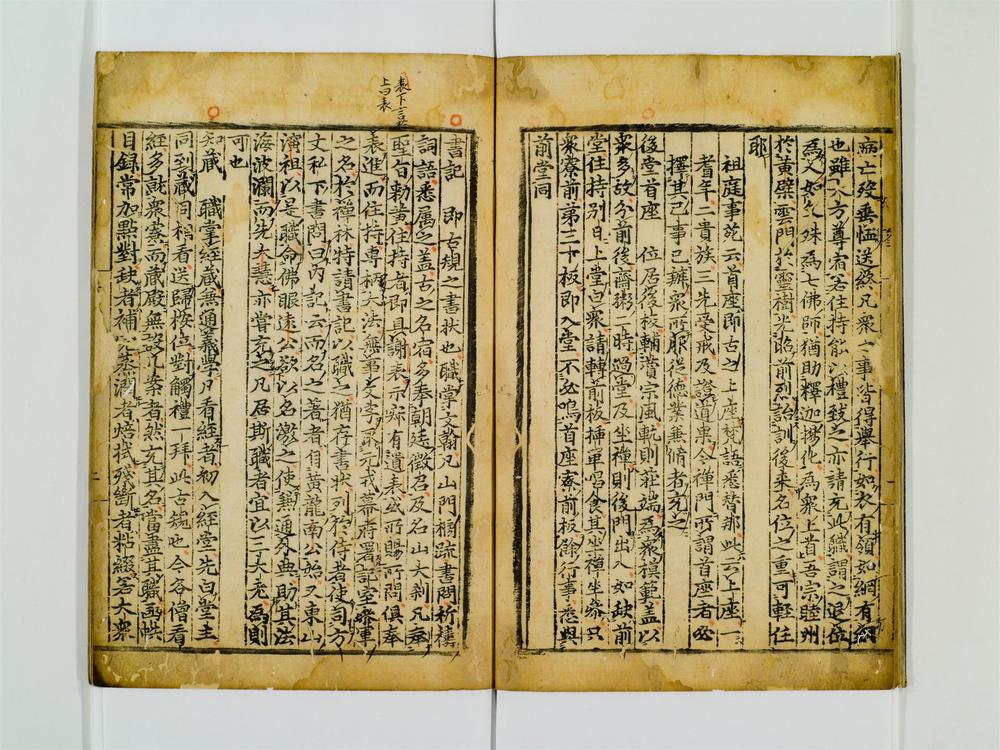 病亡殁垂恤送終凡衆之事皆得舉行如衣有領如網有綱
也雖入方尊宿若住持能以禮致之亦請充此職謂之退位
爲人如文殊爲七佛師猶助釋迦揚化爲衆上首吾宗睦州
於黄檗雲門於靈樹光昭前烈詒訓後来名位之重可輕任
耶
祖庭事苑云首座即古之上座梵語悉替那此云上座一
耆年二貴族三先受戒及證道果今禪門所謂首座者必
擇其己事已辦衆所服從德業兼備者充之
後堂首座 位居後板輔賛宗風軌則莊端爲衆模範蓋以
衆多故分前後齋粥二時過堂及坐禪則後門出入如缺前
堂住持別日上堂白衆請轉前板挿單喝食其坐禪坐參只
衆寮前第三下板即入堂不必鳴首座寮前板餘行事悉與
前堂同
表下言於
上曰表
書記 即古規之書狀也職掌文翰凡山門榜疏書問祈禱
詞語悉属之蓋古之名宿多奉朝廷徵召及名山大刹凡奉
聖旨勅黄住持者即具謝表示寂有遺表或所賜所問俱奉
表進而住持專柄大法無事文字取元戎幕府署記室參軍
之名於禪林特請書記以職之猶存書狀列於侍者使司方
丈私下書問曰内記云而名之著者自黄龍南公始又東山
演祖以是職命佛眼遠公欲以名激之使兼通外典助其法
海波瀾而先大慧亦嘗充之凡居斯職者宜以三大老爲則
可也
知藏 職掌經藏兼通義學凡看經者初入經堂先白堂主
同到藏司相看送歸按位對觸禮一拜此古規也今各僧看
經多就衆寮而藏殿無設几案者然充其名當盡其職函帙
目録常加點對缺者補完蒸潤者焙拭殘斷者粘綴若大衆